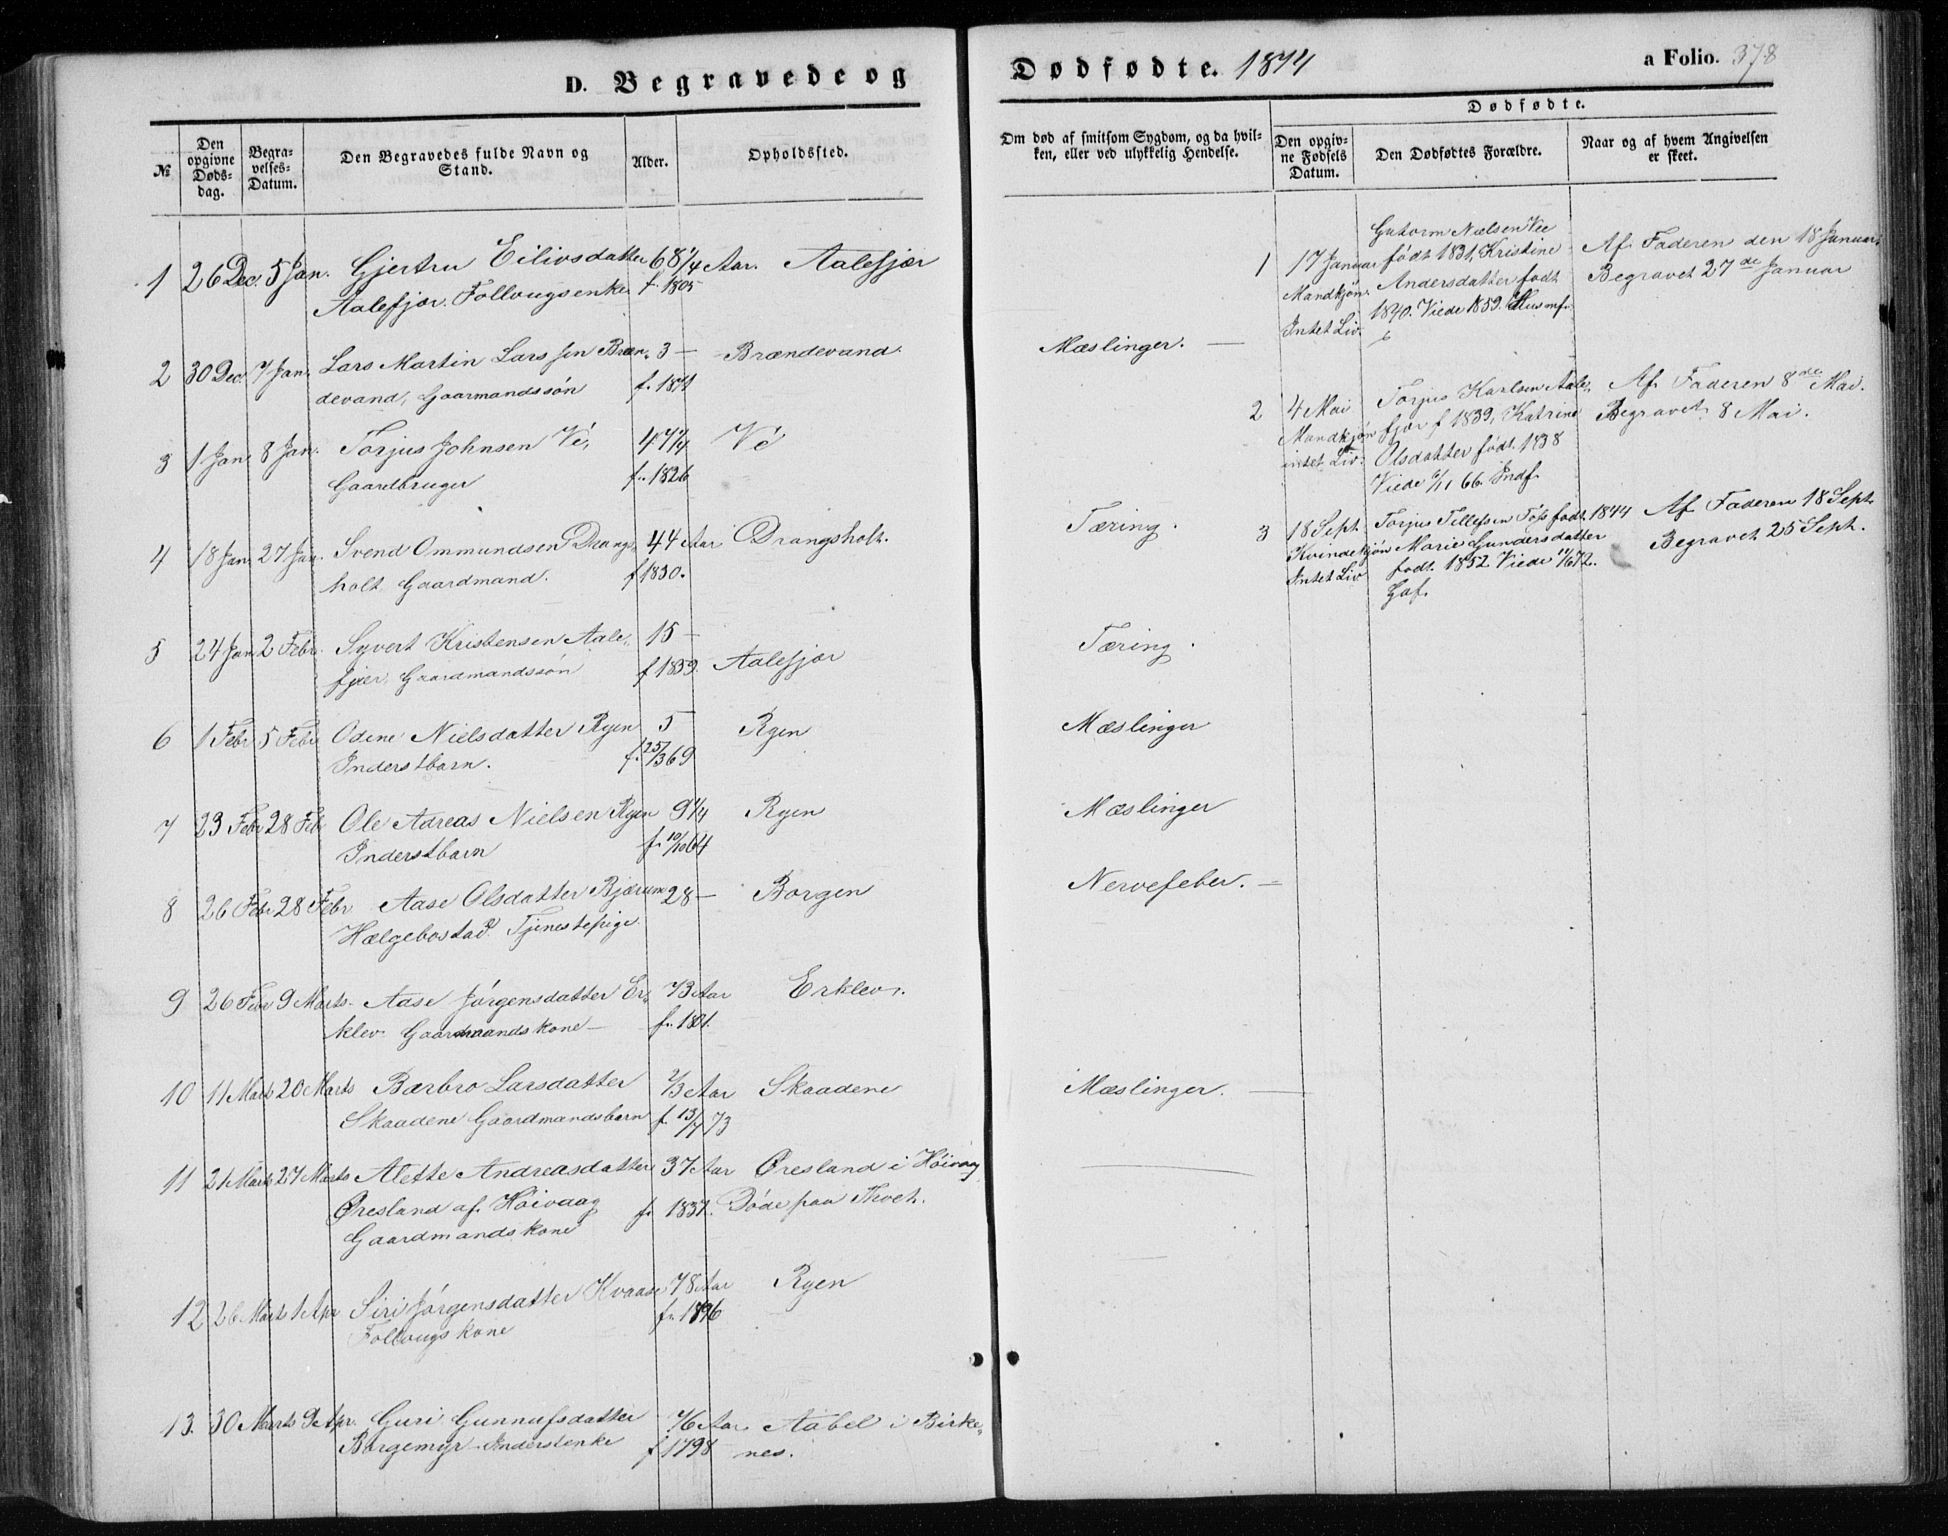 D. Begravede og
Dødfødte. 1874
a Folio. 378
№
Den opgivne Døds-dag.
Begra-velses-Datum.
Den Begravedes fulde Navn og Stand.
Alder.
Opholdssted.
Om død af smitsom Sygdom, og da hvil-
ken, eller ved ulykkelig Hendelse.
Dødfødte.
Den opgiv-ne Fødsels Datum.
Den Dødfødtes Forældre.
Naar og af hvem Angivelsen er skeet.
1 26 Dec. 5 Jan. Gjertru Eilivsdatter 68 1/4 Aar. Aalefjær
Aalefjær. Follougsenke f. 1805
2 30 Dec. 7 Jan. Lars Martin Larssen Bræn- 3 — Brændevand. Mæslinger. —
devand, Gaarmandssøn f. 1871
3 1 Jan 8 Jan. Torjus Johnsen Vé, 47 1/4 Vé
Gaardbruger f. 1826
4 18 Jan. 27 Jan. Svend Ommundsen Drangs- 44 Aar Drangsholt. Tæring.
holt Gaardmand. f 1830.
5 24 Jan. 2 Febr. Syvert Kristensen Aale- 15 — Tæring.
fjær, Gaardmandssøn f 1859. Aalefjær
6 1 Febr 5 Febr Odine Nielsdatter Ryen 5 Ryen Mæslinger
Inderstbarn. f. 25/3 69
7 23 Febr 28 Feb Ole Adreas Nielsen Ryen 9 1/4 Ryen Mæslinger
Inderstbarn f. 10/10 64
8 26 Febr 28 Febr Aase Olsdatter Bjærum 28 — Borgen Nervefeber. —
Hælgebostad Tjenestepige
9 26 Febr 9 Marts. Aase Jørgensdatter Er- 73 Aar Erklev.
klev Gaardmandskone — f. 1801.
10 11 Marts 20 Marts Barbro Larsdatter 2/3 Aar Skaadene Mæslinger. —
Skaadene Gaardmandsbarn f. 13/7 73
11 21 Marts 27 Marts Alette Andreasdatter 37 Aar Øresland i Høivaag
Øresland af Høivaag f. 1837. Døde paa Tveit.
Gaardmandskone
12 26 Marts 1 Apr Siri Jørgensdatter Kvaase 78 Aar Ryen
Follougskone f. 1896
13. 30 Marts 9 Apr. Guri Gunnufsdatter 76 Aar Aabel i Birke-
Borgemyr Inderstenke f 1798 nes.
1 17 Januar
Mandkjøn.
Intet Liv.
Gutorm Nielsen Vee
født 1831, Kristine
Andersdatter født
1840. Viede 1859. Husmf.
Af Faderen den 18 Januar.
Begravet 27de Januar
2 4 Mai
Mandkjøn
intet Liv.
Torjus Karlsen Aale-
fjær f 1839, Katrine
Olsdatter født 1838
Viede 6/11 66. Indf.
Af Faderen 8de Mai.
Begravet 8 Mai.
3 18 Sept.
Kvindekjøn
Intet Liv
Torjus Tellefsen Foss født 1844
Marie Gundersdatter
født 1852 Viede 11/6 72.
Gaf.
Af Faderen 18 Sept.
Begravet 25 Sept.